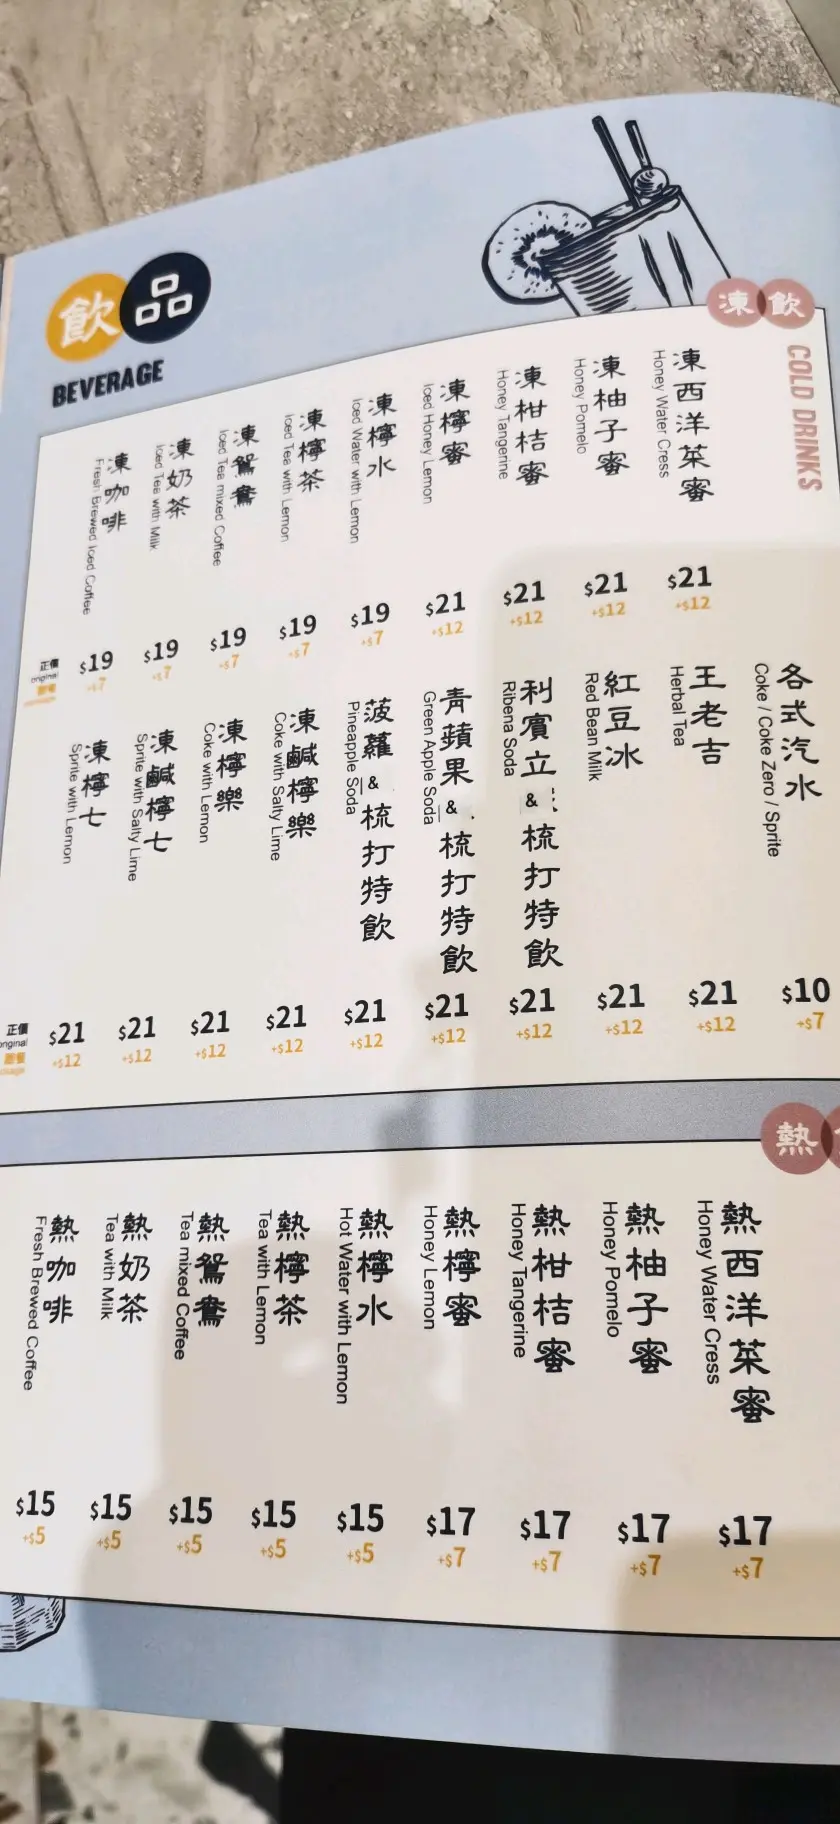 飲品
BEVERAGE
凍飲
COLD DRINKS
凍西洋菜蜜
Honey Water Cress
$21
+$12
凍柚子蜜
Honey Pomelo
$21
+$12
凍柑桔蜜
Honey Tangerine
$21
+$12
凍檸蜜
Iced Honey Lemon
$21
+$12
凍檸水
Iced Water with Lemon
$19
+$7
凍檸茶
Iced Tea with Lemon
$19
+$7
凍鴛鴦
Iced Tea mixed Coffee
$19
+$7
凍奶茶
Iced Tea with Milk
$19
+$7
凍咖啡
Fresh Brewed Iced Coffee
$19
+$7
正價
original
各式汽水
Coke / Coke Zero / Sprite
$10
+$7
王老吉
Herbal Tea
$21
+$12
紅豆冰
Red Bean Milk
$21
+$12
利賓立&梳打特飲
Ribena Soda
$21
+$12
青蘋果&梳打特飲
Green Apple Soda
$21
+$12
菠蘿&梳打特飲
Pineapple Soda
$21
+$12
凍鹹檸樂
Coke with Salty Lime
$21
+$12
凍檸樂
Coke with Lemon
$21
+$12
凍鹹檸七
Sprite with Salty Lime
$21
+$12
凍檸七
Sprite with Lemon
$21
+$12
正價
original
熱
熱西洋菜蜜
Honey Water Cress
$17
+$7
熱柚子蜜
Honey Pomelo
$17
+$7
熱柑桔蜜
Honey Tangerine
$17
+$7
熱檸蜜
Honey Lemon
$17
+$7
熱檸水
Hot Water with Lemon
$15
+$5
熱檸茶
Tea with Lemon
$15
+$5
熱鴛鴦
Tea mixed Coffee
$15
+$5
熱奶茶
Tea with Milk
$15
+$5
熱咖啡
Fresh Brewed Coffee
$15
+$5